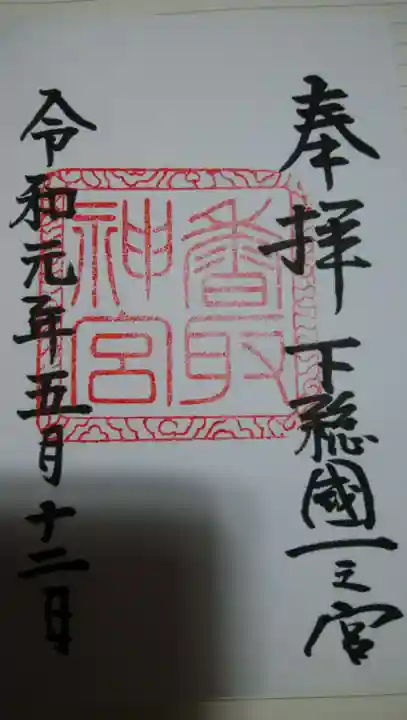 奉拝 下総國一之宮
香取
神宮
令和元年五月十二日